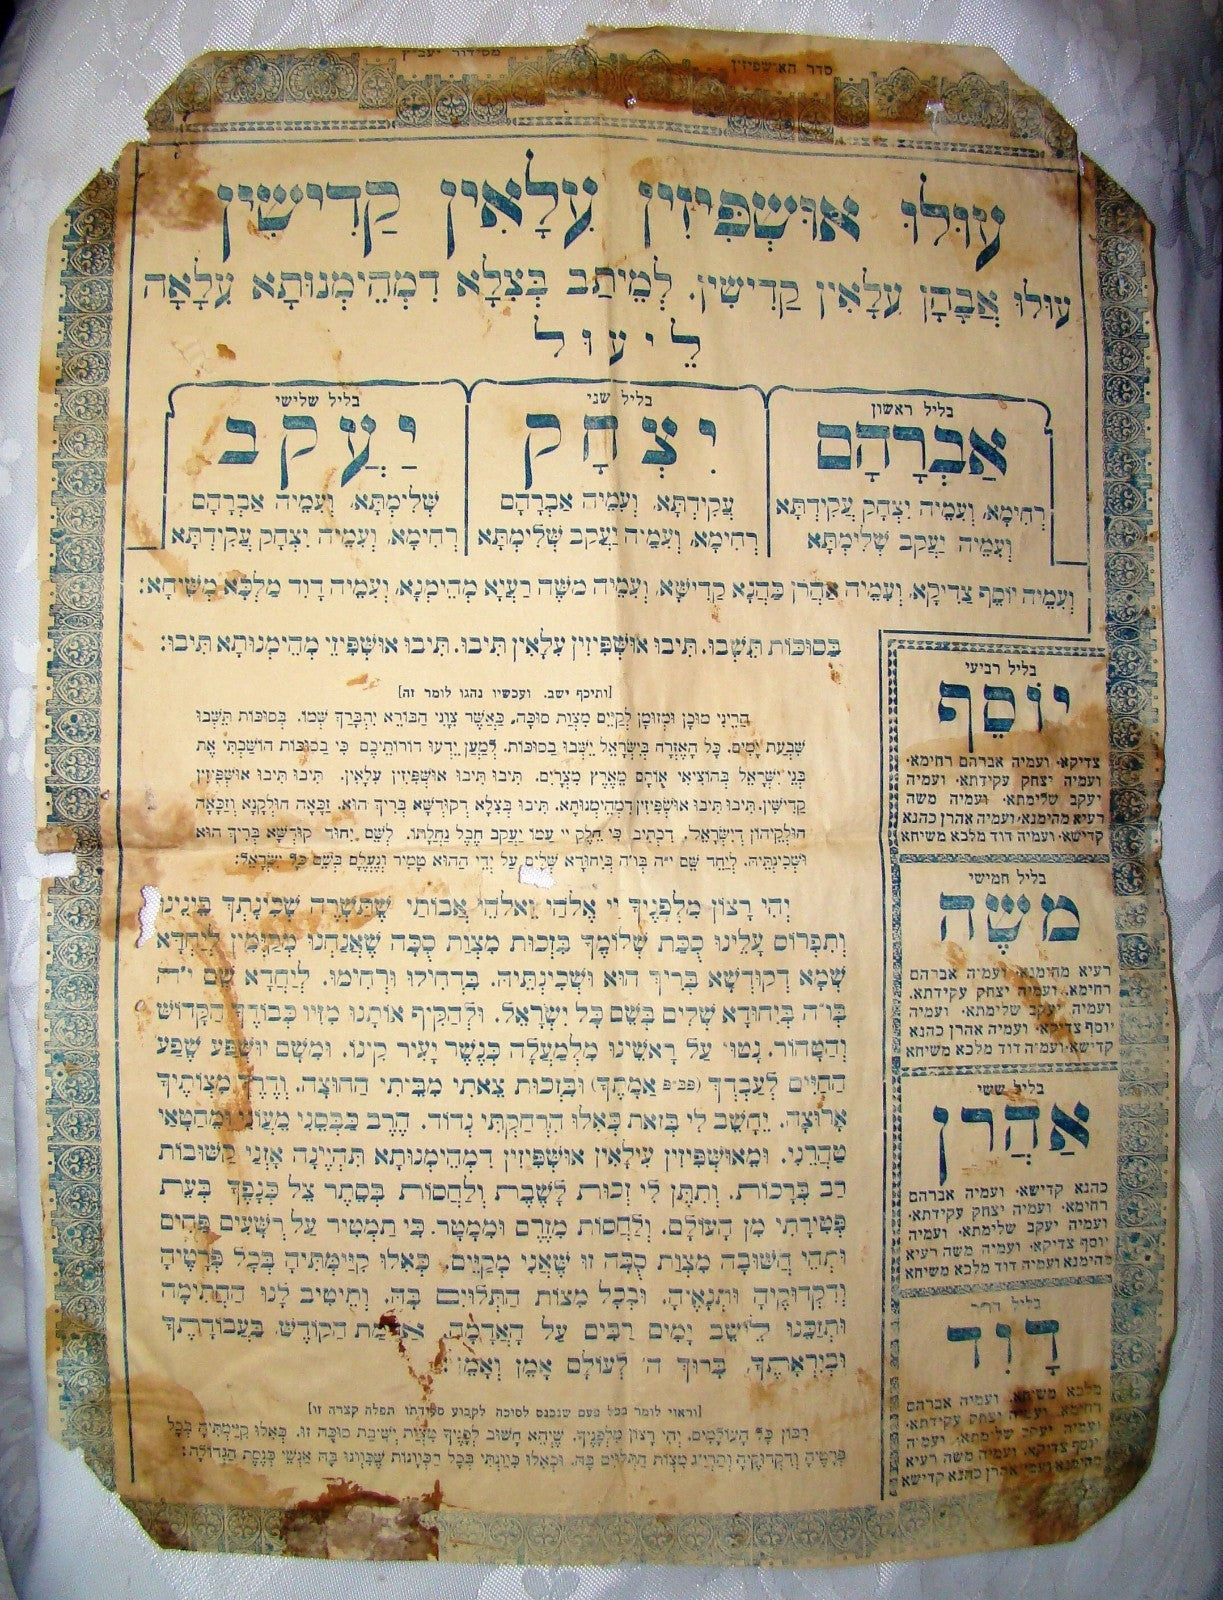 סדר האושפיזין
מסידור יעב״ץ
עולו אוּשְׁפִּיזִין עִלָּאִין קַדִּישִׁין
עולו אֲבָהָן עִלָּאִין קַדִּישִׁין. לְמֵיתַב בְּצִלָּא דִמְהֵימְנוּתָא עִלָּאָה
לֵיעוּל
בליל ראשון
אַבְרָהָם
רְחִימָא, וְעִמֵּיהּ יִצְחָק עֲקֵידְתָּא
וְעִמֵּיהּ יַעֲקֹב שְׁלֵימְתָּא
בליל שני
יִצְחָק
עֲקֵידְתָּא, וְעִמֵּיהּ אַבְרָהָם
רְחִימָא, וְעִמֵּיהּ יַעֲקֹב שְׁלֵימְתָּא
בליל שלישי
יַעֲקֹב
שְׁלֵימְתָּא, וְעִמֵּיהּ אַבְרָהָם
רְחִימָא, וְעִמֵּיהּ יִצְחָק עֲקֵידְתָּא
וְעִמֵּיהּ יוֹסֵף צַדִּיקָא, וְעִמֵּיהּ אַהֲרֹן כַּהֲנָא קַדִּישָׁא, וְעִמֵּיהּ מֹשֶׁה רַעְיָא מְהֵימְנָא, וְעִמֵּיהּ דָּוִד מַלְכָּא מְשִׁיחָא:
בַּסּוּכּוֹת תֵּשְׁבוּ. תִּיבוּ אוּשְׁפִּיזִין עִלָּאִין תִּיבוּ. תִּיבוּ אוּשְׁפִּיזֵי מְהֵימְנוּתָא תִּיבוּ:
[ותיכף ישב. ועכשיו נהגו לומר זה]
הֲרֵינִי מוּכָן וּמְזוּמָן לְקַיֵּם מִצְוַת סוּכָּה, כַּאֲשֶׁר צִוַּנִי הַבּוֹרֵא יִתְבָּרַךְ שְׁמוֹ. בַּסּוּכּוֹת תֵּשְׁבוּ
שִׁבְעַת יָמִים. כָּל הָאֶזְרָח בְּיִשְׂרָאֵל יֵשְׁבוּ בַּסוּכּוֹת. לְמַעַן יֵדְעוּ דוֹרוֹתֵיכֶם כִּי בַסּוּכּוֹת הוֹשַׁבְתִּי אֶת
בְּנֵי יִשְׂרָאֵל בְּהוֹצִיאִי אוֹתָם מֵאֶרֶץ מִצְרָיִם. תִּיבוּ תִּיבוּ אוּשְׁפִּיזִין עִלָּאִין. תִּיבוּ תִּיבוּ אוּשְׁפִּיזִין
קַדִּישִׁין. תִּיבוּ תִּיבוּ אוּשְׁפִּיזִין דִמְהֵימְנוּתָא. תִּיבוּ בְּצִלָּא דְקוּדְשָׁא בְּרִיךְ הוּא. זַכָּאָה חוּלְקָנָא וְזַכָּאָה
חוּלְקֵיהוֹן דְיִשְׂרָאֵל. דִּכְתִיב כִּי חֵלֶק יְיָ עַמּוֹ יַעֲקֹב חֶבֶל נַחֲלָתוֹ. לְשֵׁם יִחוּד קוּדְשָׁא בְּרִיךְ הוּא
וּשְׁכִינְתֵּיהּ. לְיַחֵד שֵׁם י״ה בו״ה בְּיִחוּדָא שְׁלִים. עַל יְדֵי הַהוּא טָמִיר וְנֶעְלָם בְּשֵׁם כָּל יִשְׂרָאֵל:
וִיהִי רָצוֹן מִלְּפָנֶיךָ יְיָ אֱלֹהַי וֵאלֹהֵי אֲבוֹתַי שֶׁתַּשְׁרֶה שְׁכִינָתְךָ בֵּינֵינוּ
וְתִפְרוֹס עָלֵינוּ סֻכַּת שְׁלוֹמֶךָ בִּזְכוּת מִצְוַת סֻכָּה שֶׁאֲנַחְנוּ מְקַיְּמִין לְיַחֲדָא
שְׁמָא דְקוּדְשָׁא בְּרִיךְ הוּא וּשְׁכִינְתֵּיהּ. בִּדְחִילוּ וּרְחִימוּ. לְיַחֲדָא שֵׁם י״ה
בו״ה בְּיִחוּדָא שְׁלִים בְּשֵׁם כָּל יִשְׂרָאֵל. וּלְהַקִּיף אוֹתָנוּ מִזִּיו כְּבוֹדְךָ הַקָּדוֹשׁ
וְהַטָּהוֹר. נָטוּי עַל רָאשֵׁינוּ מִלְמַעְלָה כְּנֶשֶׁר יָעִיר קִינוֹ. וּמִשָּׁם יוּשְׁפַּע שֶׁפַע
הַחַיִּים לְעַבְדְּךָ אֲמָתֶךָ) וּבִזְכוּת צֵאתִי מִבֵּיתִי הַחוּצָה. וְדֶרֶךְ מִצְוֹתֶיךָ
אָרוּצָה. יֵחָשֵׁב לִי בְּזֹאת כְּאִלּוּ הִרְחַקְתִּי נְדוֹד. הֶרֶב כַּבְּסֵנִי מֵעֲוֹנִי וּמֵחַטָּאתִי
טַהֲרֵנִי. וּמֵאוּשְׁפִּיזִין עִילָּאִין אוּשְׁפִּיזִין דִמְהֵימְנוּתָא תִּהְיֶינָה אָזְנֵי קַשּׁוּבוֹת
רַב בְּרָכוֹת. וְתִתֵּן לִי זְכוּת לָשֶׁבֶת וְלַחֲסוֹת בְּסֵתֶר צֵל כְּנָפֶיךָ בְּעֵת
פְּטִירָתִי מִן הָעוֹלָם. וְלַחֲסוֹת מִזֶּרֶם וּמִמָּטָר. כִּי תַמְטִיר עַל רְשָׁעִים פַּחִים
וּתְהֵי חֲשׁוּבָה מִצְוַת סֻכָּה זוֹ שֶׁאֲנִי מְקַיֵּם. כְּאִלּוּ קִיַּימְתִּיהָ בְּכָל פְּרָטֶיהָ
וְדִקְדּוּקֶיהָ וּתְנָאֶיהָ. וּבְכָל מִצְוֹת הַתְּלוּיִם בָּהּ. וְתֵיטִיב לָנוּ הַחֲתִימָה
וּתְזַכֵּנוּ לֵישֵׁב יָמִים רַבִּים עַל הָאֲדָמָה. אַדְמַת הַקּוֹדֶשׁ בַּעֲבוֹדָתֶךָ
וּבְיִרְאָתֶךָ. בָּרוּךְ ה׳ לְעוֹלָם אָמֵן וְאָמֵן:
[וראוי לומר בכל פעם שנכנס לסוכה לקבוע סעודתו תפלה קצרה זו]
רִבּוֹן כָּל הָעוֹלָמִים. יְהִי רָצוֹן מִלְּפָנֶיךָ. שֶׁיְּהֵא חָשׁוּב לְפָנֶיךָ מִצְוַת יְשִׁיבַת סוּכָּה זוֹ. כְּאִלּוּ קִיַּמְתִּיהָ בְּכָל
פְּרָטֶיהָ וְדִקְדּוּקֶיהָ וְתַרְיַ״ג מִצְוֹת הַתְּלוּיִם בָּהּ. וּכְאִלּוּ כִּוַּנְתִּי בְּכָל הַכַּוָּנוֹת שֶׁכִּוְּונוּ בָהּ אַנְשֵׁי כְּנֶסֶת הַגְּדוֹלָה:
בליל רביעי
יוֹסֵף
צדיקא· ועמיה אברהם רחימא·
ועמיה יצחק עקידתא· ועמיה
יעקב שלימתא· ועמיה משה
רעיא מהימנא· ועמיה אהרן כהנא
קדישא· ועמיה דוד מלכא משיחא
בליל חמישי
מֹשֶׁה
רעיא מהימנא· ועמיה אברהם
רחימא. ועמיה יצחק עקידתא.
ועמיה יעקב שלימתא· ועמיה
יוסף צדיקא· ועמיה אהרן כהנא
קדישא· ועמיה דוד מלכא משיחא
בליל ששי
אַהֲרֹן
כהנא קדישא· ועמיה אברהם
רחימא· ועמיה יצחק עקידתא·
ועמיה יעקב שלימתא· ועמיה
יוסף צדיקא· ועמיה משה רעיא
מהימנא ועמיה דוד מלכא משיחא
בליל הו״ר
דָּוִד
מלכא משיחא. ועמיה אברהם
רחימא· ועמיה יצחק עקידתא·
ועמיה יעקב שלימתא· ועמיה
יוסף צדיקא. ועמיה משה רעיא
מהימנא ועמי אהרן כהנא קדישא